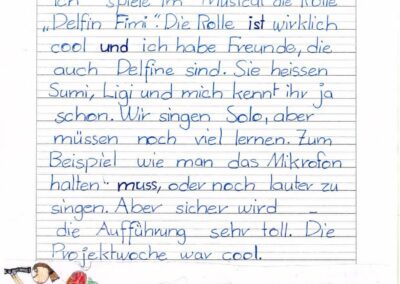 Ich spiele im Musical die Rolle
„Delfin Fimi". Die Rolle ist wirklich
cool und ich habe Freunde, die
auch Delfine sind. Sie heissen
Sumi, Ligi und mich kennt ihr ja
schon. Wir singen Solo, aber
müssen noch viel lernen. Zum
Beispiel wie man das Mikrofon
halten muss, oder noch lauter zu
singen. Aber sicher wird
die Aufführung sehr toll. Die
Projektwoche war cool.